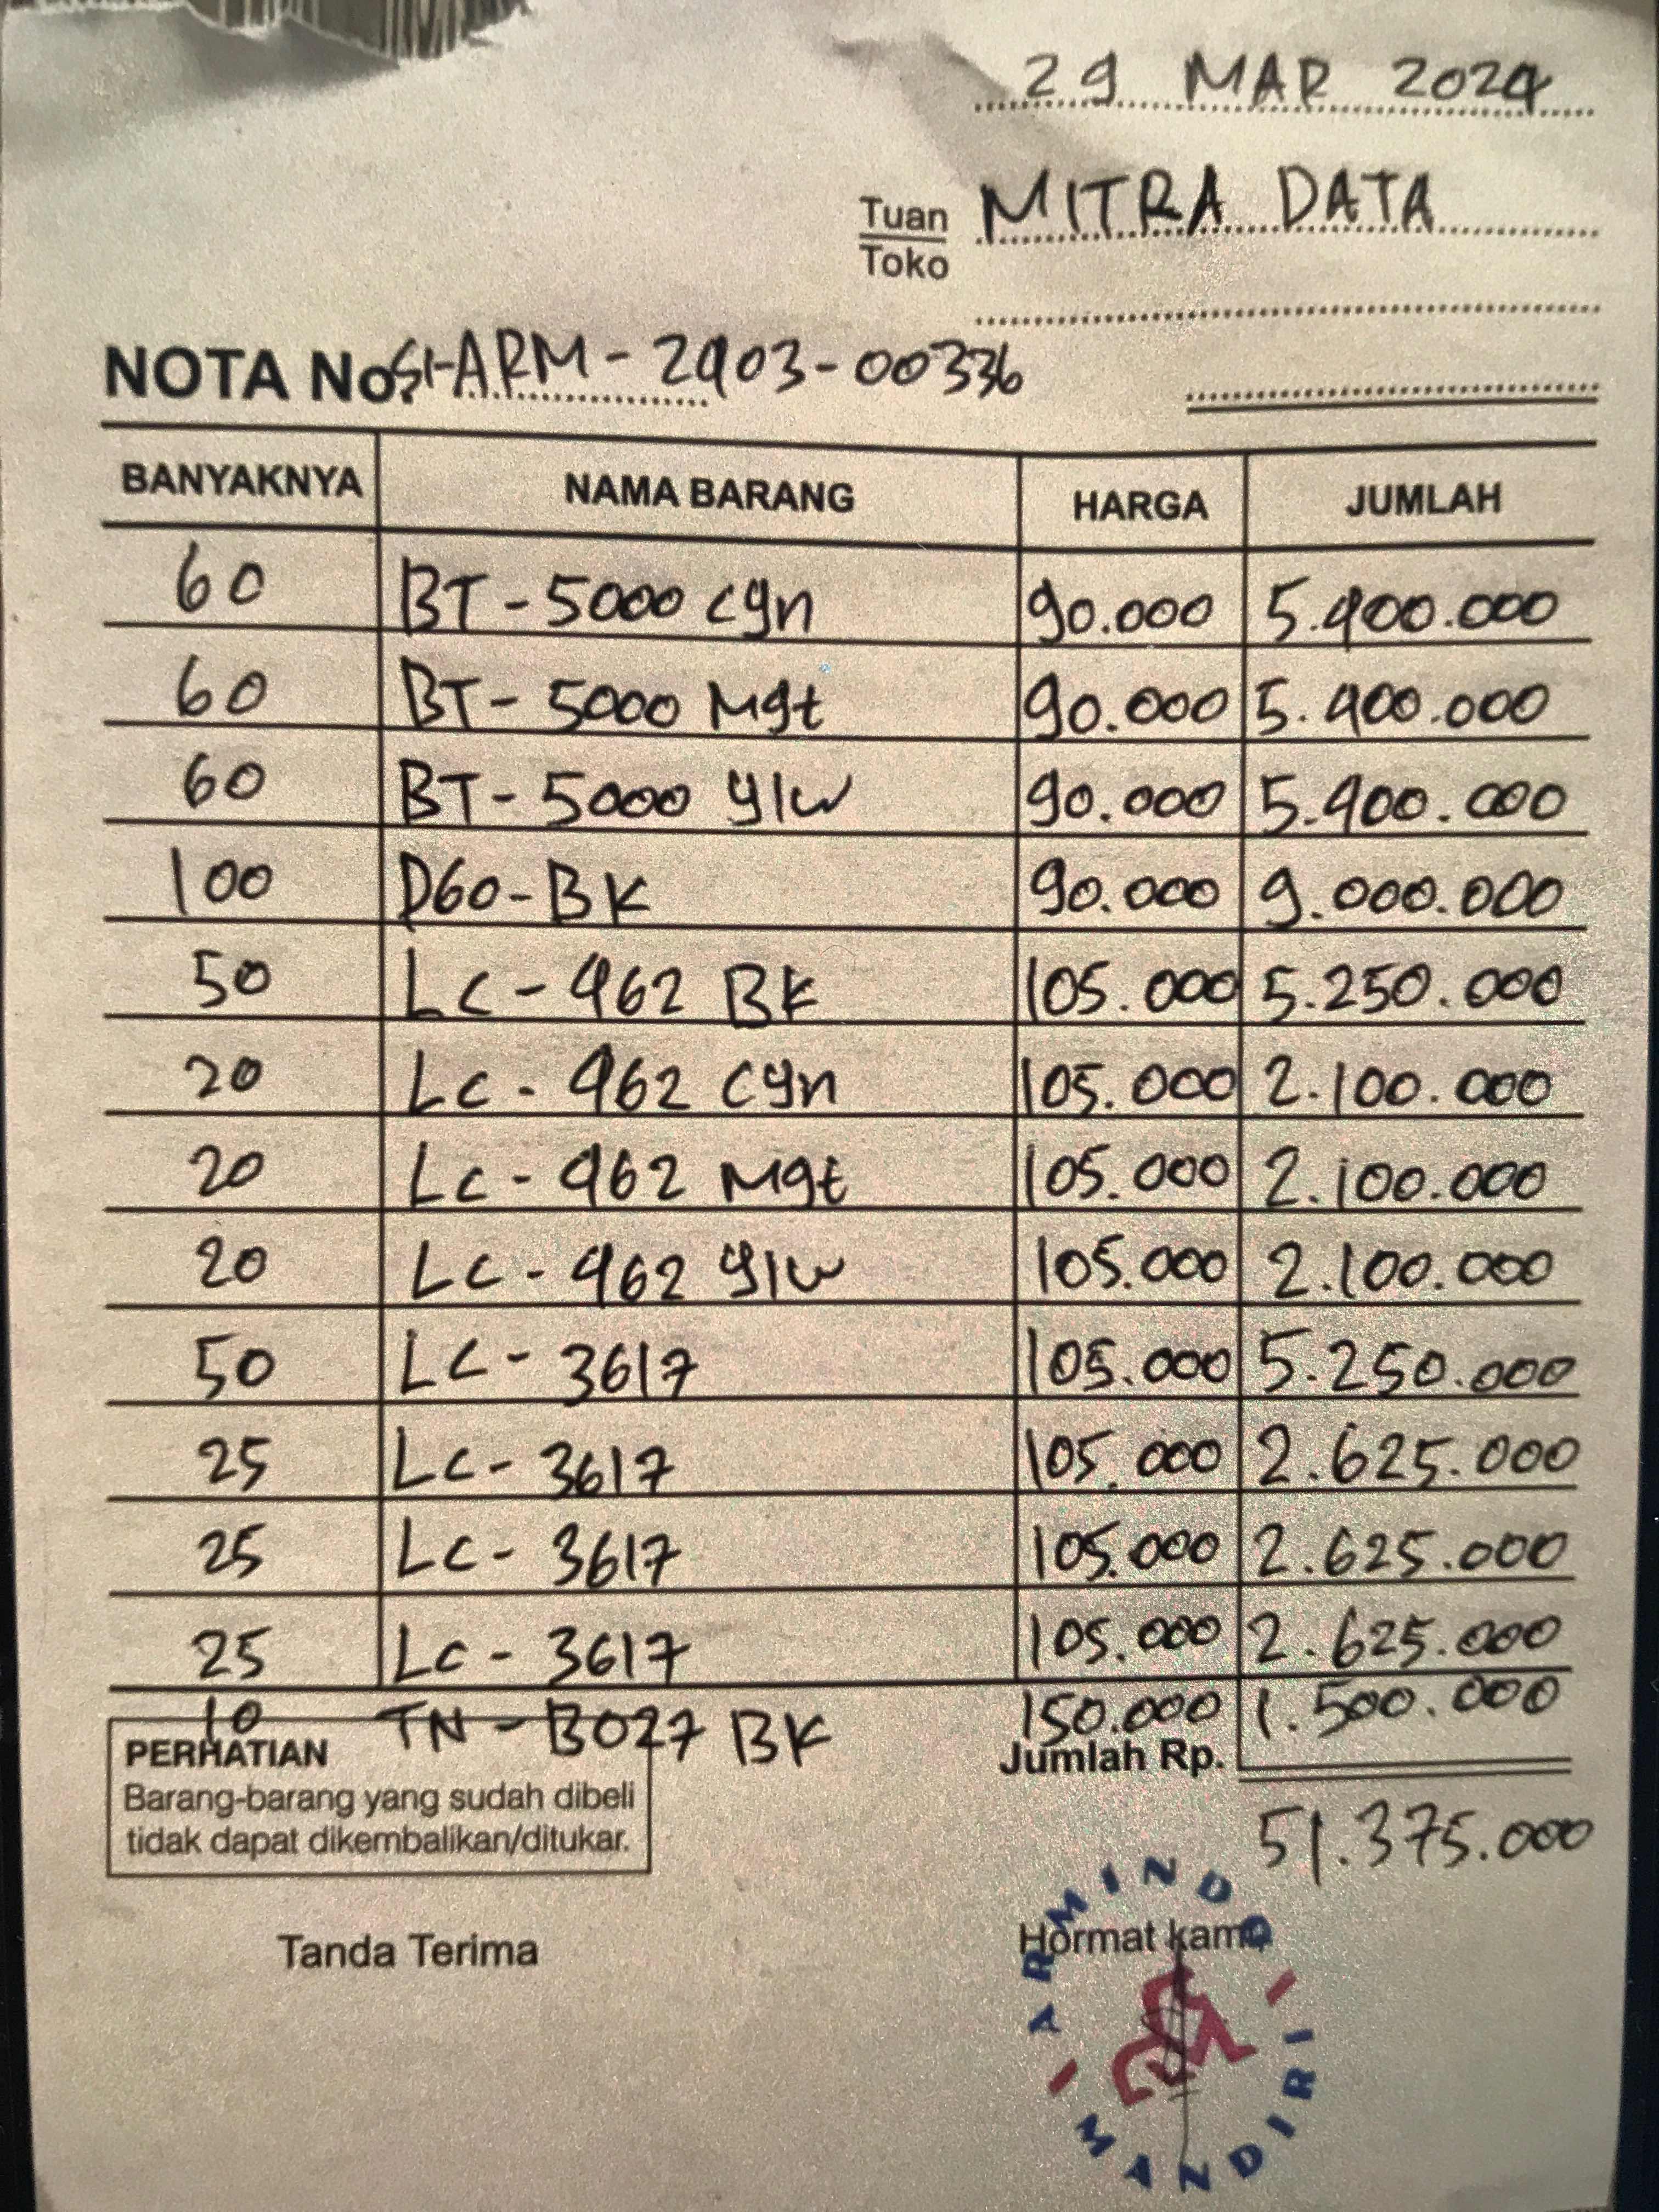 29 MAR 2024
Tuan MITRA DATA
Toko
NOTA No. SI-ARM-2403-00336
BANYAKNYA NAMA BARANG HARGA JUMLAH
60 BT-5000 Cyn 90.000 5.400.000
60 BT-5000 Mgt 90.000 5.400.000
60 BT-5000 Ylw 90.000 5.400.000
100 D60-BK 90.000 9.000.000
50 LC-462 BK 105.000 5.250.000
20 LC-462 Cyn 105.000 2.100.000
20 LC-462 Mgt 105.000 2.100.000
20 LC-462 Ylw 105.000 2.100.000
50 LC-3617 105.000 5.250.000
25 LC-3617 105.000 2.625.000
25 LC-3617 105.000 2.625.000
25 LC-3617 105.000 2.625.000
10 TN-B027 BK 150.000 1.500.000
PERHATIAN
Barang-barang yang sudah dibeli
tidak dapat dikembalikan/ditukar.
Jumlah Rp.
51.375.000
Tanda Terima Hormat kami
ARMINDO MANDIRI